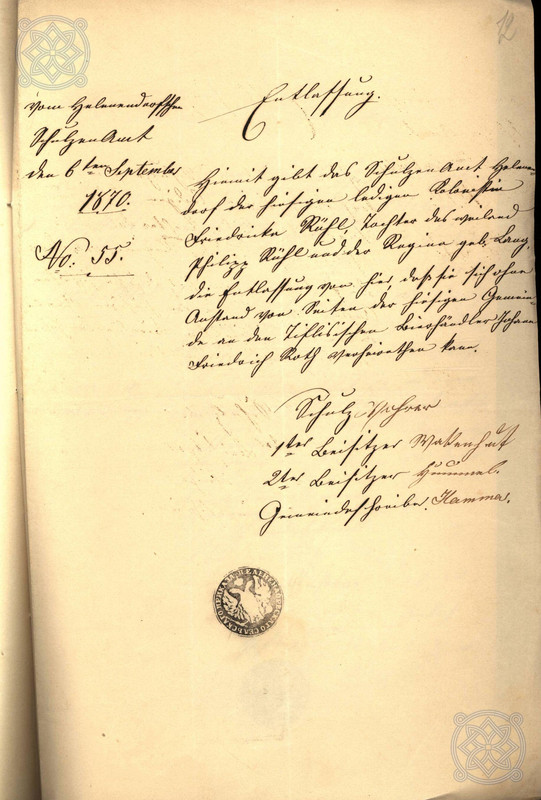 12
Vom Helenendorffschen
Schulzen Amt
den 6ten September
1870.
No. 55.
Entlassung.
Hiemit gibt das Schulzen Amt Helenen-
dorf der hiesigen ledigen Kolonistin
Friedricka Rühl, Tochter des weiland
Philipp Rühl und der Regina geb. Lang,
die Entlassung von hier, daß sie sich ohne
Anstand von Seiten der hiesigen Gemein-
de an den Tiflisischen Bierhändler Johann
Friedrich Roth verheirathen kann.
Schulz Vohrer
1ter Beisitzer Watenhut
2ter Beisitzer Hummel.
Gemeindeschreiber Kammer.